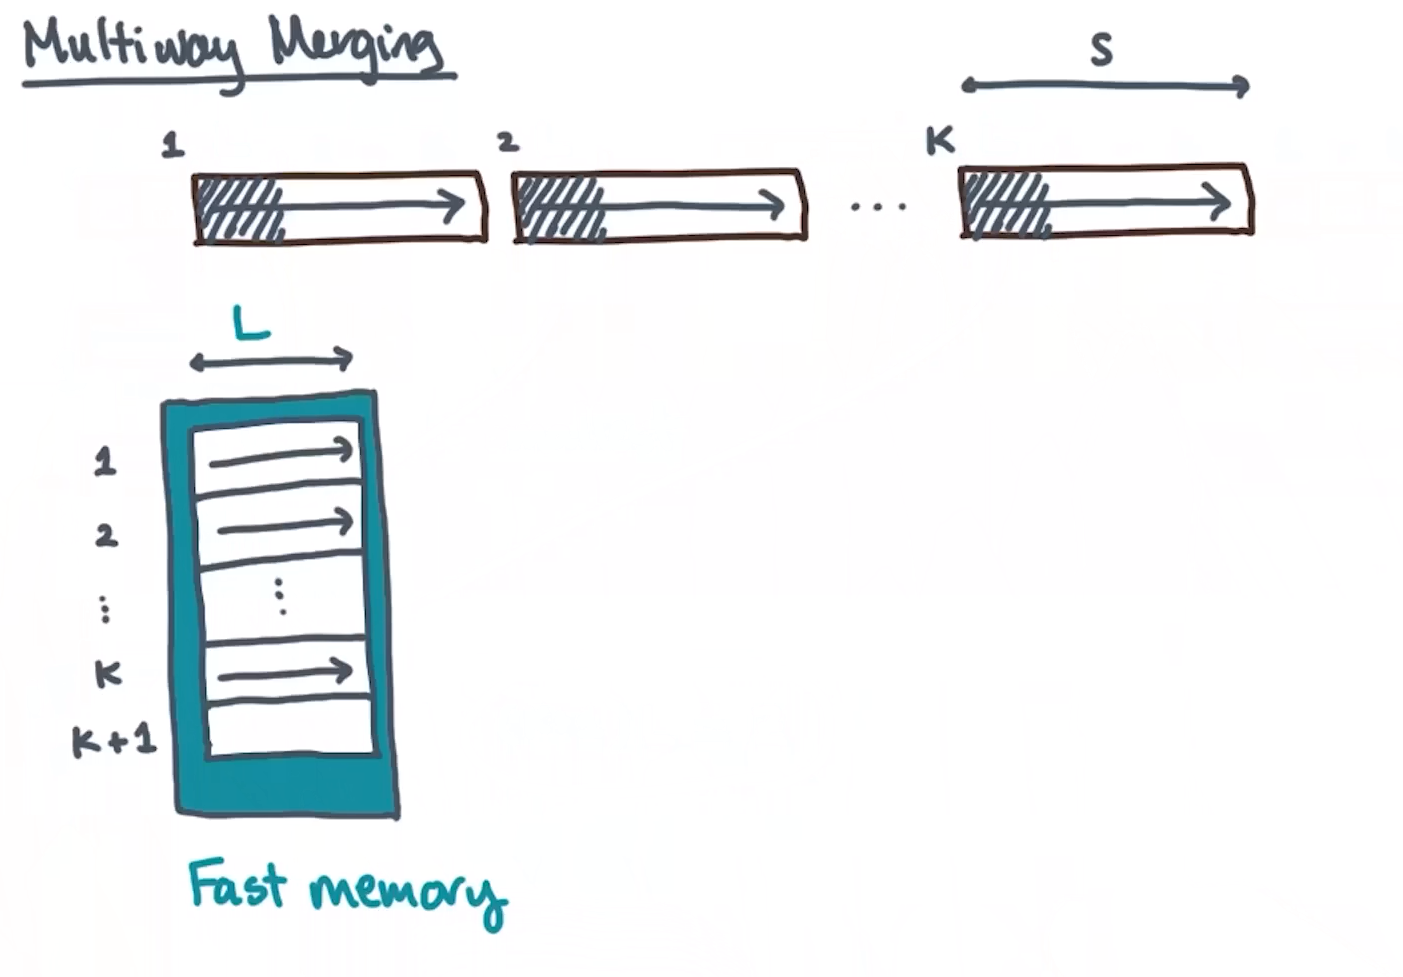 Multiway Merging
S
1 2 ... K
L
1
2
⋮
⋮
K
K+1
Fast memory